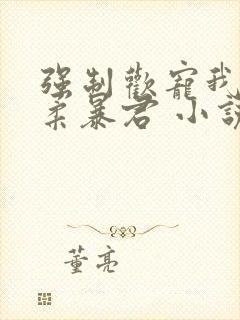 强制歡寵我
柔暴君 小說
董亮